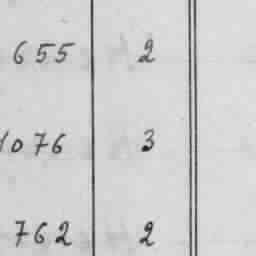 655 2
1076 3
762 2